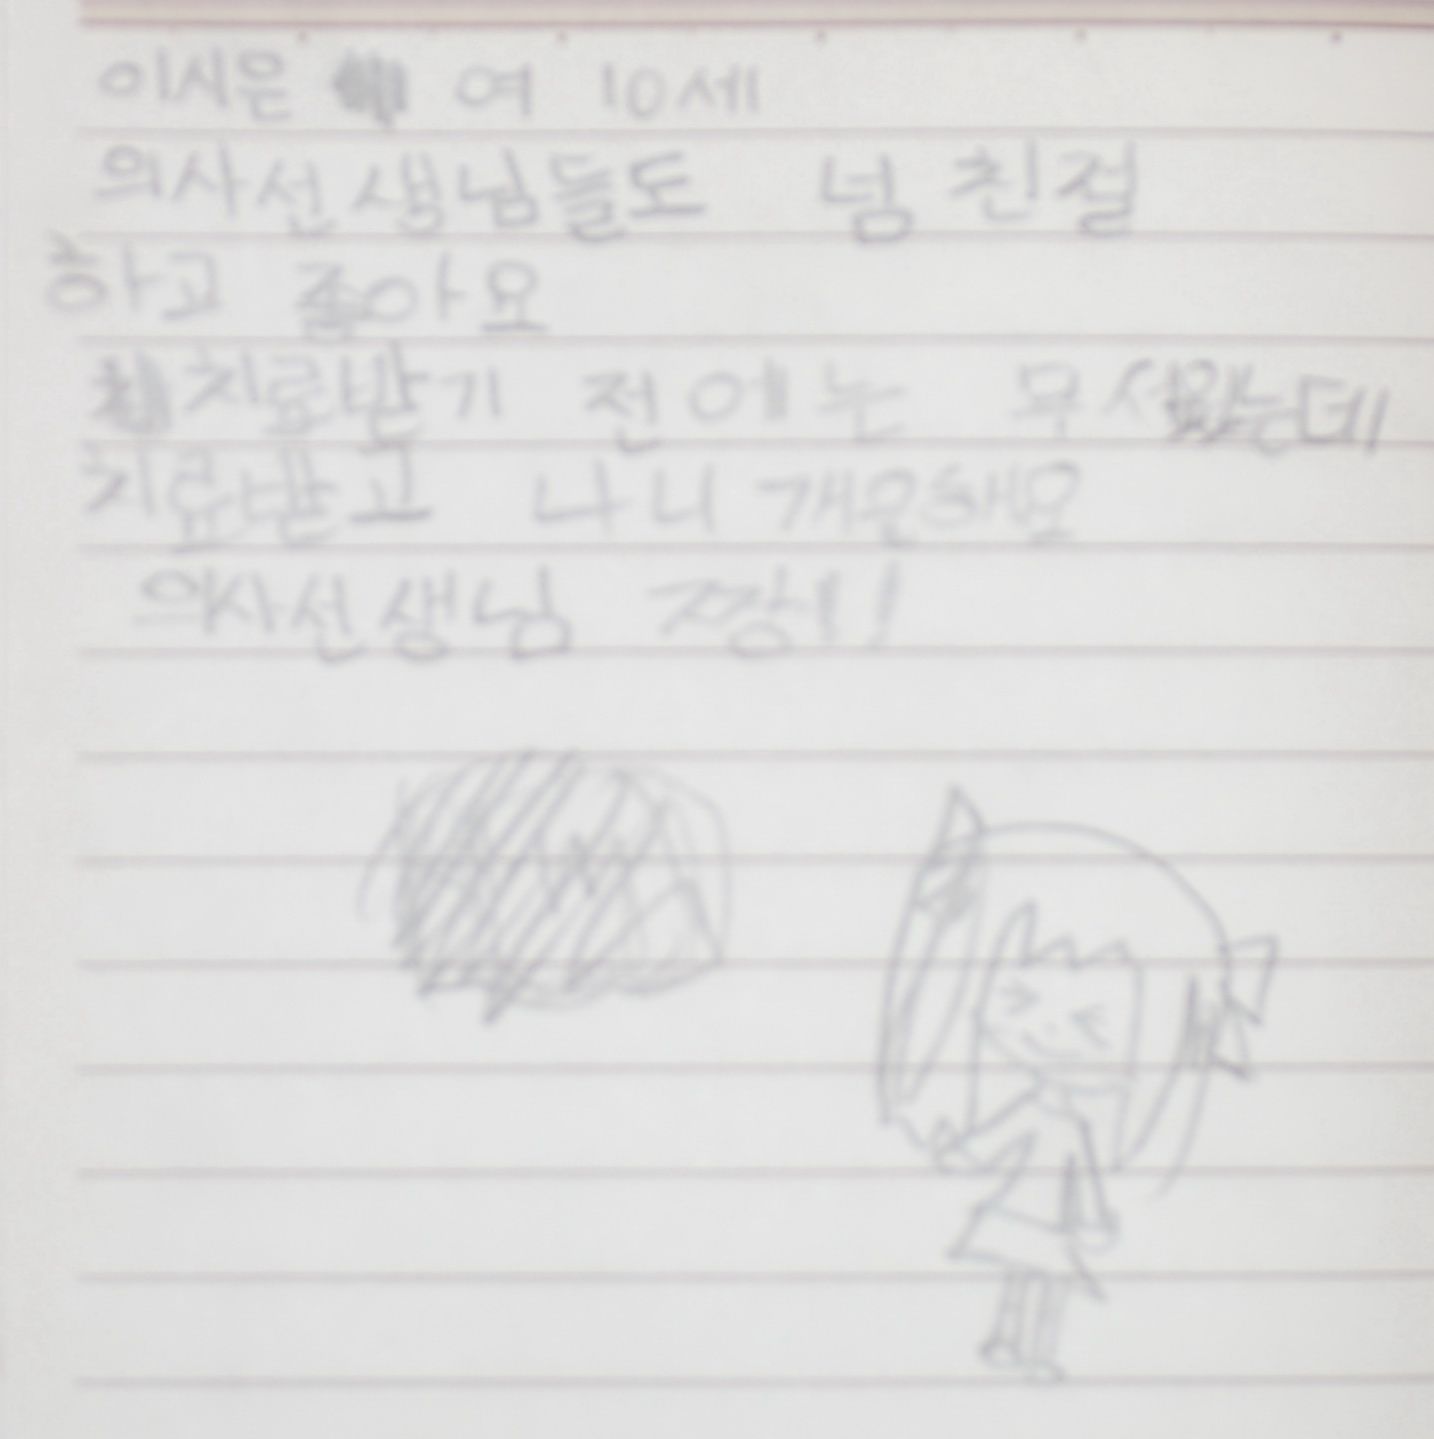 이시은 여 10세
의사선생님들도 넘 친절
하고 좋아요
치료받기 전에는 무서웠는데
치료받고 나니 개운해요
의사선생님 짱!!